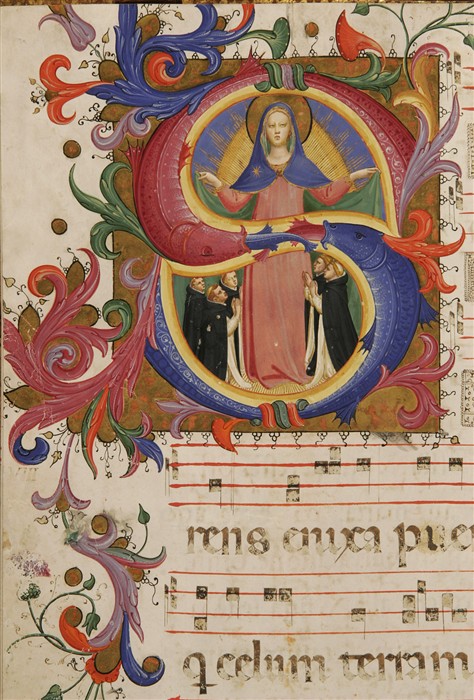 S
rens enixa pue
q celum terram